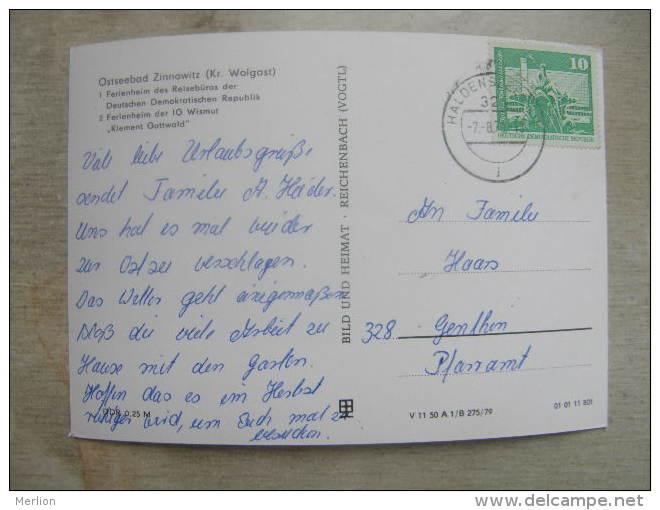 Ostseebad Zinnowitz (Kr. Wolgast)
1 Ferienheim des Reisebüros der
Deutschen Demokratischen Republik
2 Ferienheim der IG Wismut
„Klement Gottwald"
Viele liebe Urlaubsgrüße
sendet Familie A. Häder.
Uns hat es mal wieder
zur Ostsee verschlagen.
Das Wetter geht einigermaßen
Bloß die viele Arbeit zu
Hause mit den Garten.
Hoffen das es im Herbst
ruhiger wird, um Euch mal zu
besuchen.
DDR 0,25 M
BILD UND HEIMAT · REICHENBACH (VOGTL)
HALDENS
10
DEUTSCHE DEMOKRATISCHE REPUBLIK
An Familie
Haars
328 Genthin
Pfarramt
V 11 50 A 1/B 275/79
01 01 11 801
Merlion
www.delcampe.net